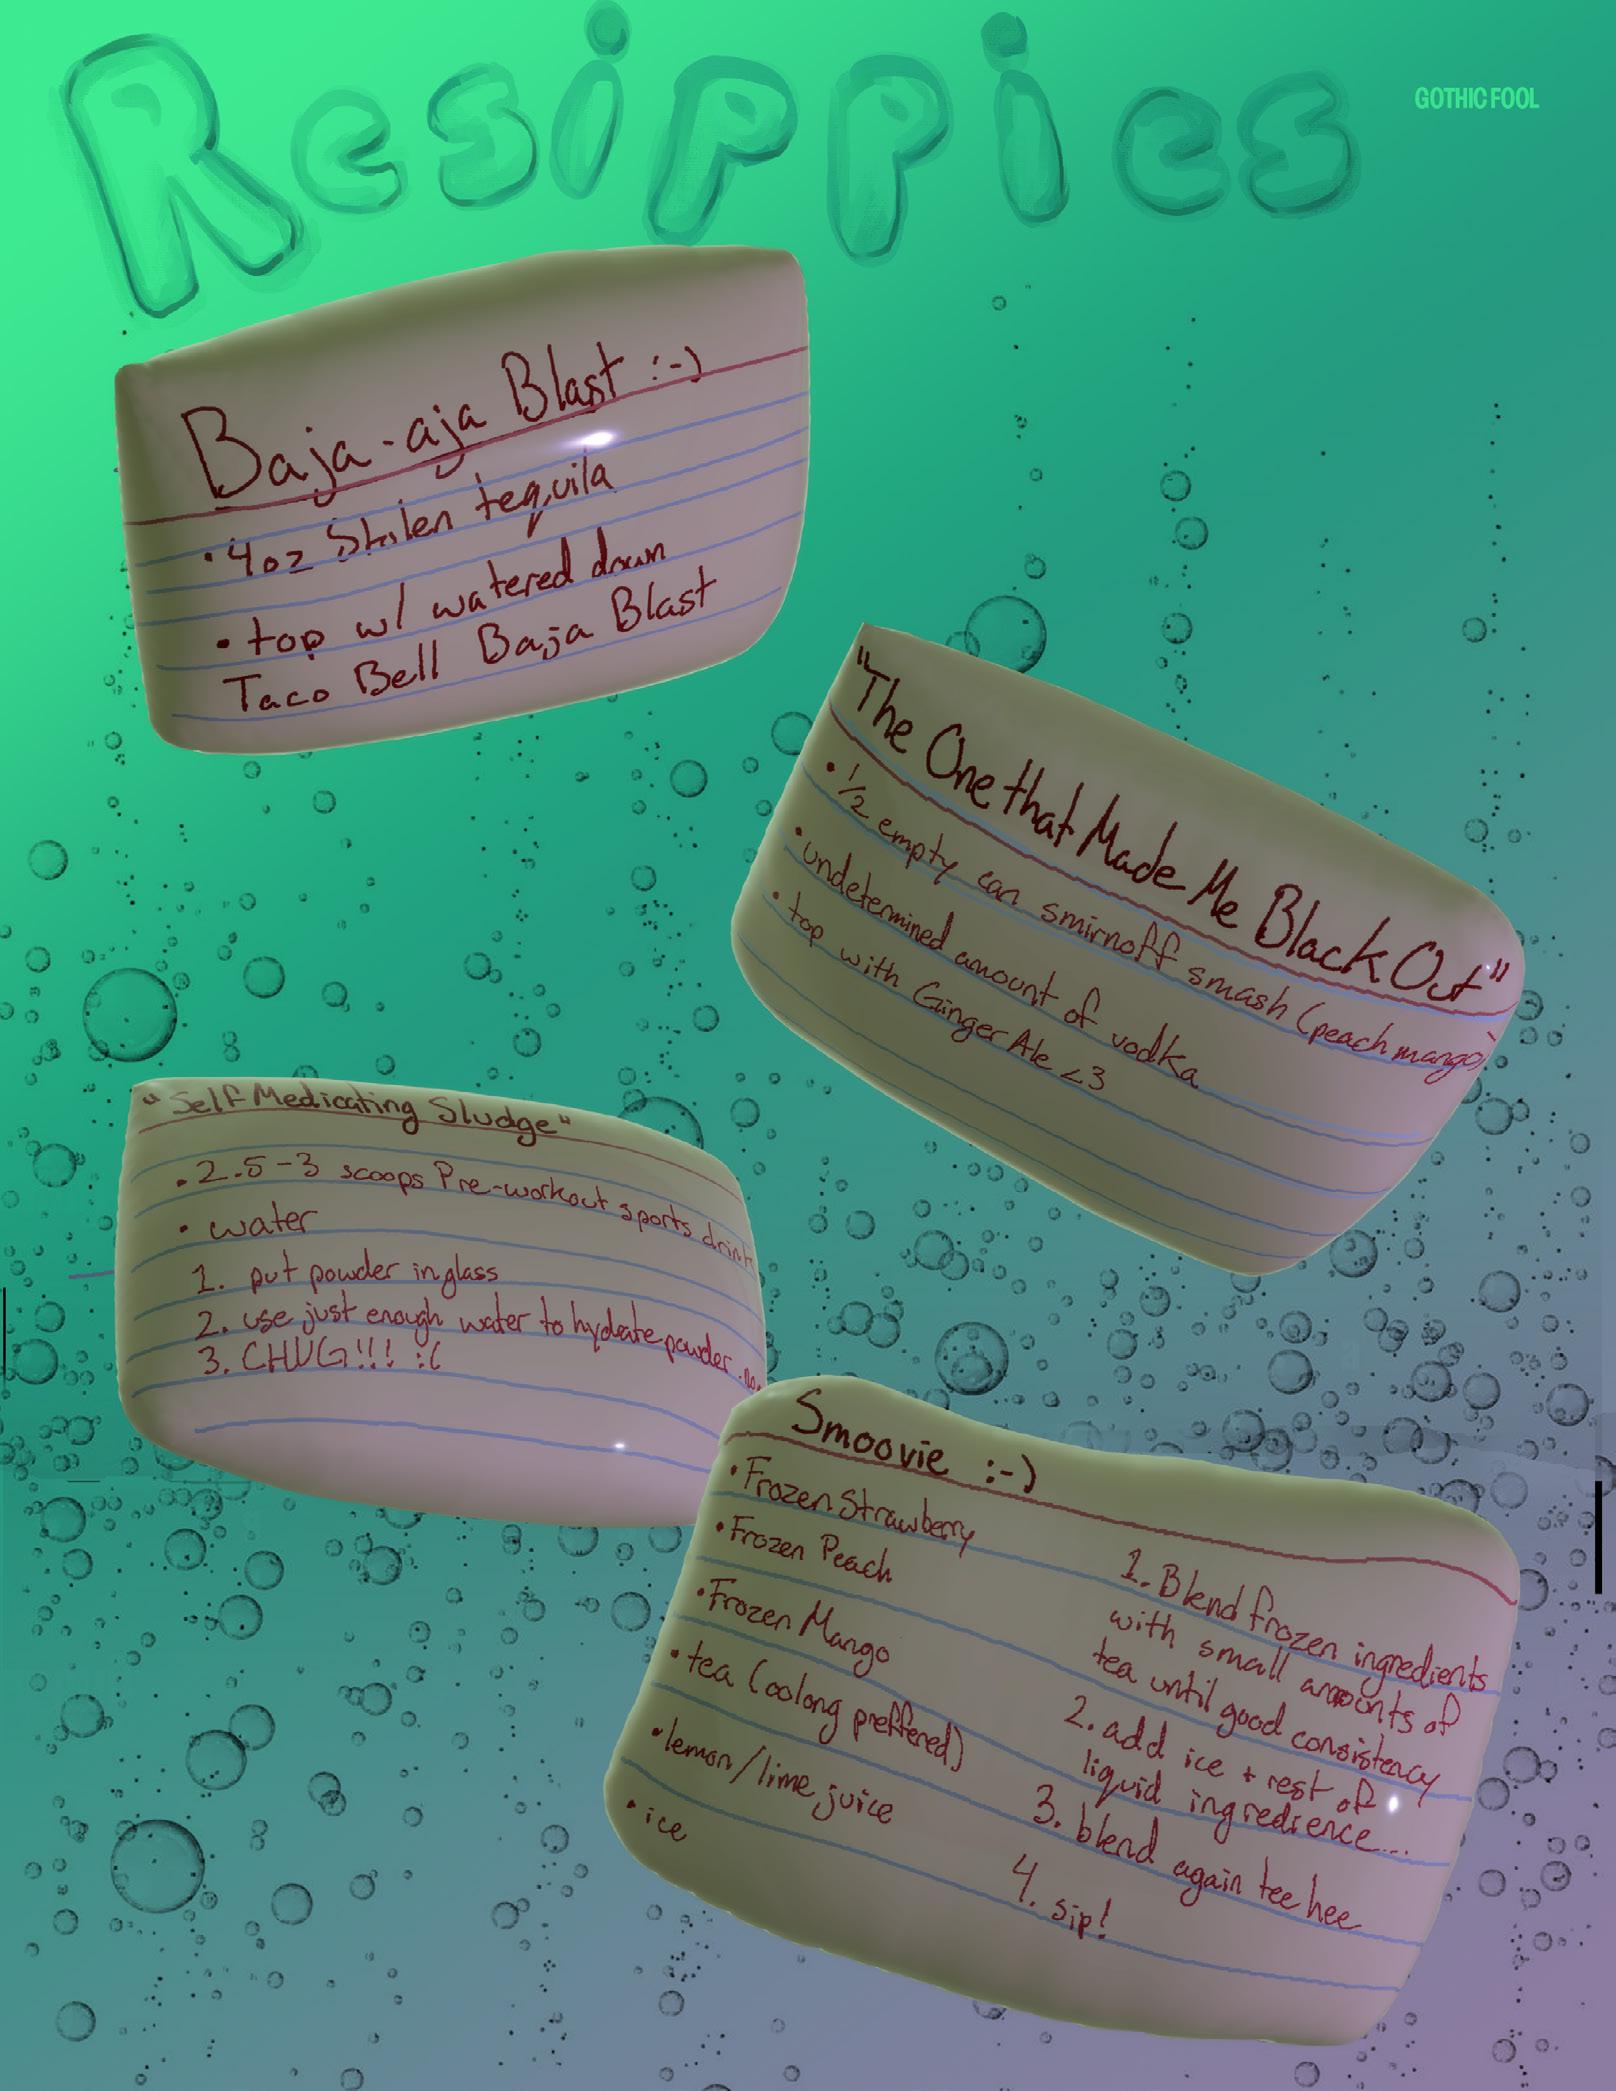 Resippies
GOTHIC FOOL
Baja-aja Blast :-)
• 4oz Stolen tequila
• top w/ watered down
Taco Bell Baja Blast
"The One that Made Me Black Out"
• 1/2 empty can smirnoff smash (peach mango)
• undetermined amount of vodka
• top with Ginger Ale <3
"Self Medicating Sludge"
• 2.5-3 scoops Pre-workout sports drink
• water
1. put powder in glass
2. use just enough water to hydrate powder
3. CHUG!!! :(
Smoovie :-)
• Frozen Strawberry
• Frozen Peach
• Frozen Mango
• tea (oolong preffered)
• lemon/lime juice
• ice
1. Blend frozen ingredients
with small amounts of
tea until good consistency
2. add ice + rest of
liquid ingredience...
3. blend again tee hee
4. sip!